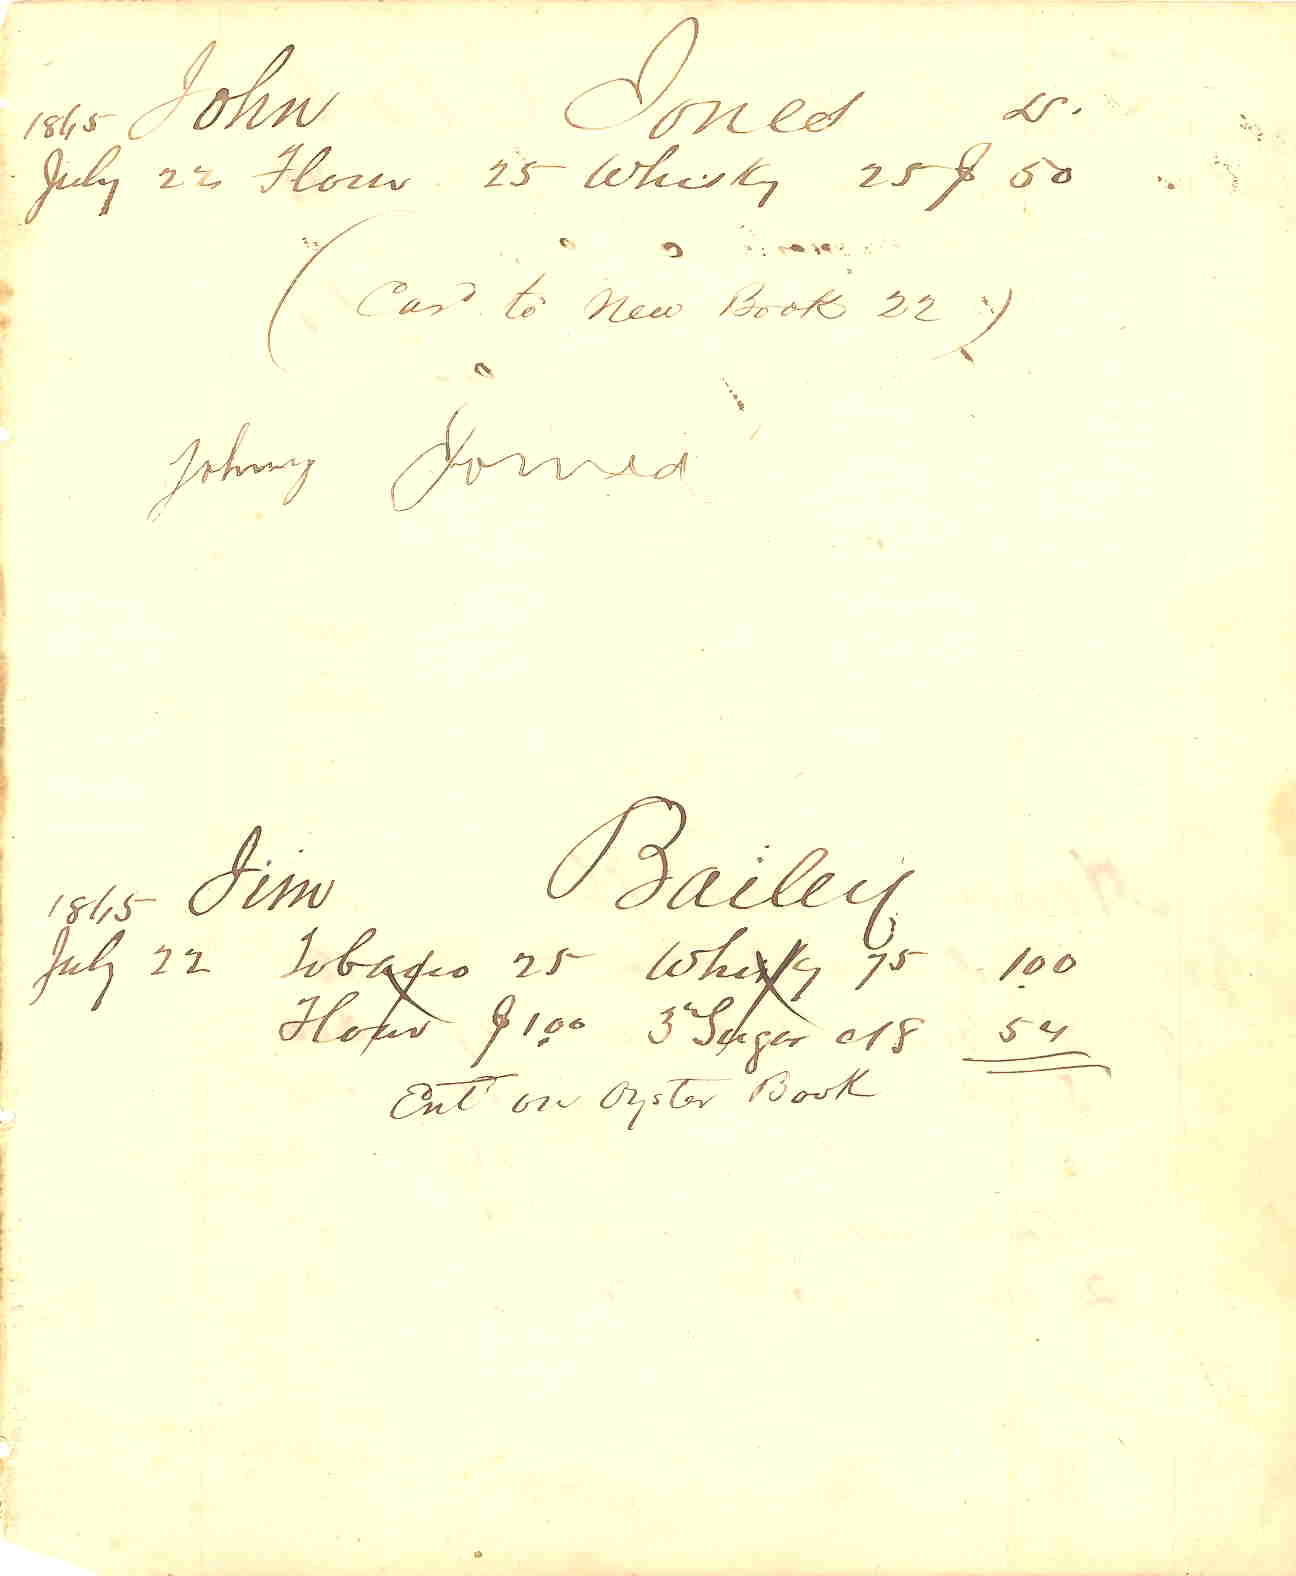 1865 John Jones Dr.
July 22 Flour 25 Whisky 25 $ 50
(Card to New Book 22)
Johnny Jones
1865 Jim Bailey
July 22 Tobacco 25 Whisky 75 1.00
Flour $1.00 3 Sugar at 18 54
Ent on Oyster Book